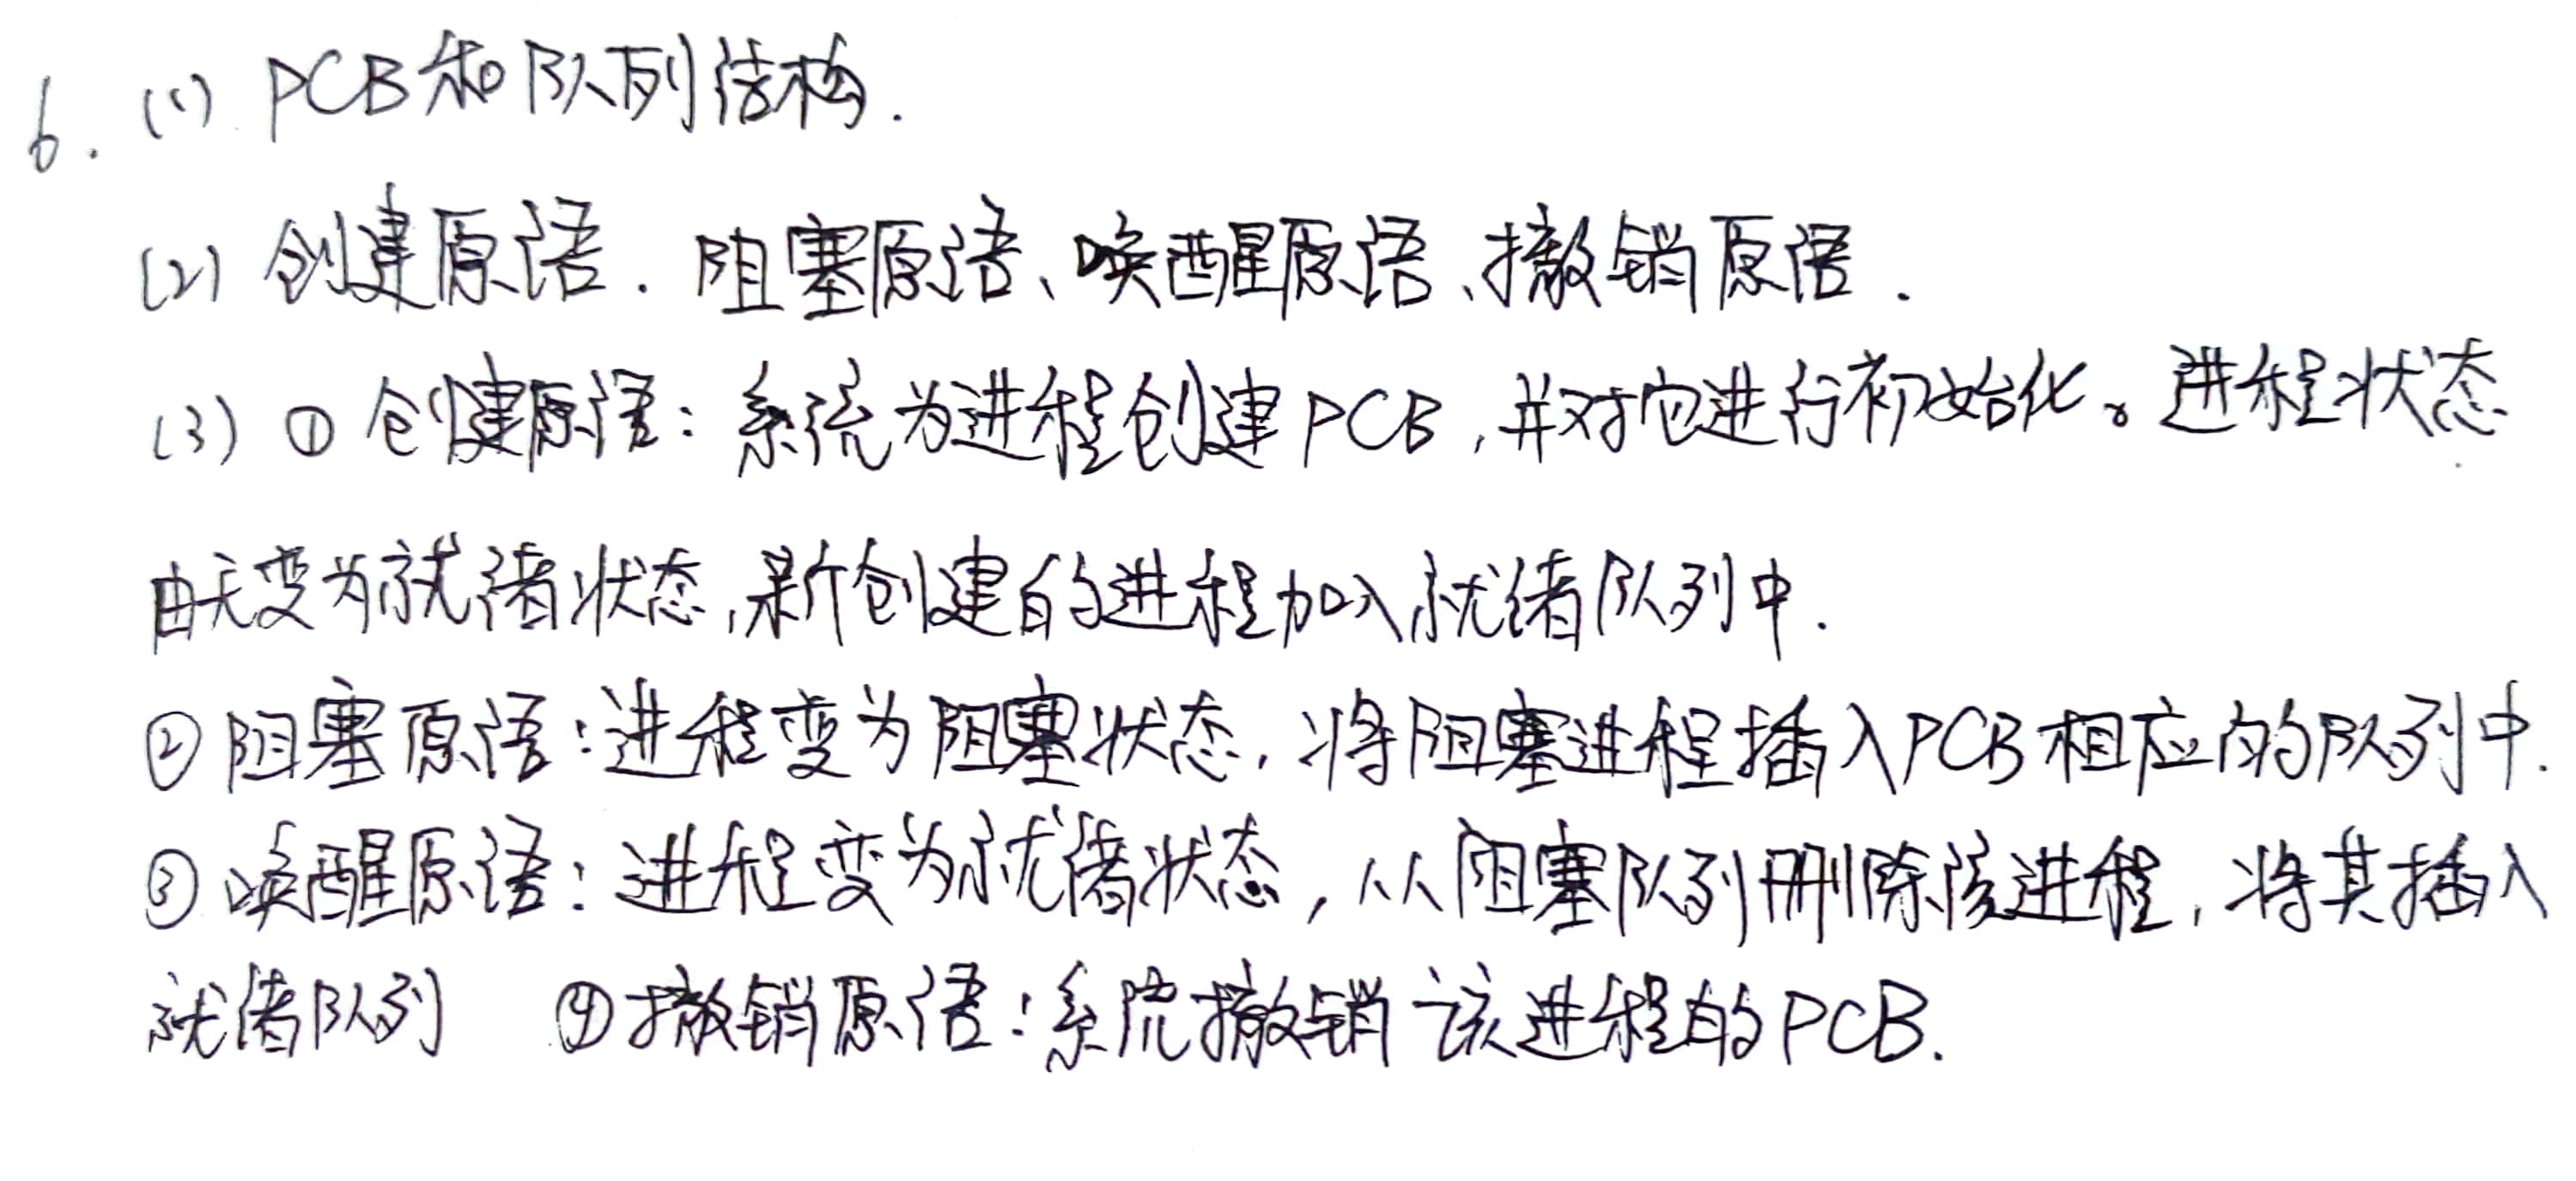 6. (1) PCB和队列结构.
(2) 创建原语. 阻塞原语、唤醒原语、撤销原语.
(3) ① 创建原语: 系统为进程创建PCB,并对它进行初始化。进程状态
由无变为就绪状态,新创建的进程加入就绪队列中.
② 阻塞原语:进程变为阻塞状态,将阻塞进程插入PCB相应的队列中.
③ 唤醒原语: 进程变为就绪状态,从阻塞队列删除该进程,将其插入
就绪队列 ④撤销原语:系统撤销该进程的PCB.